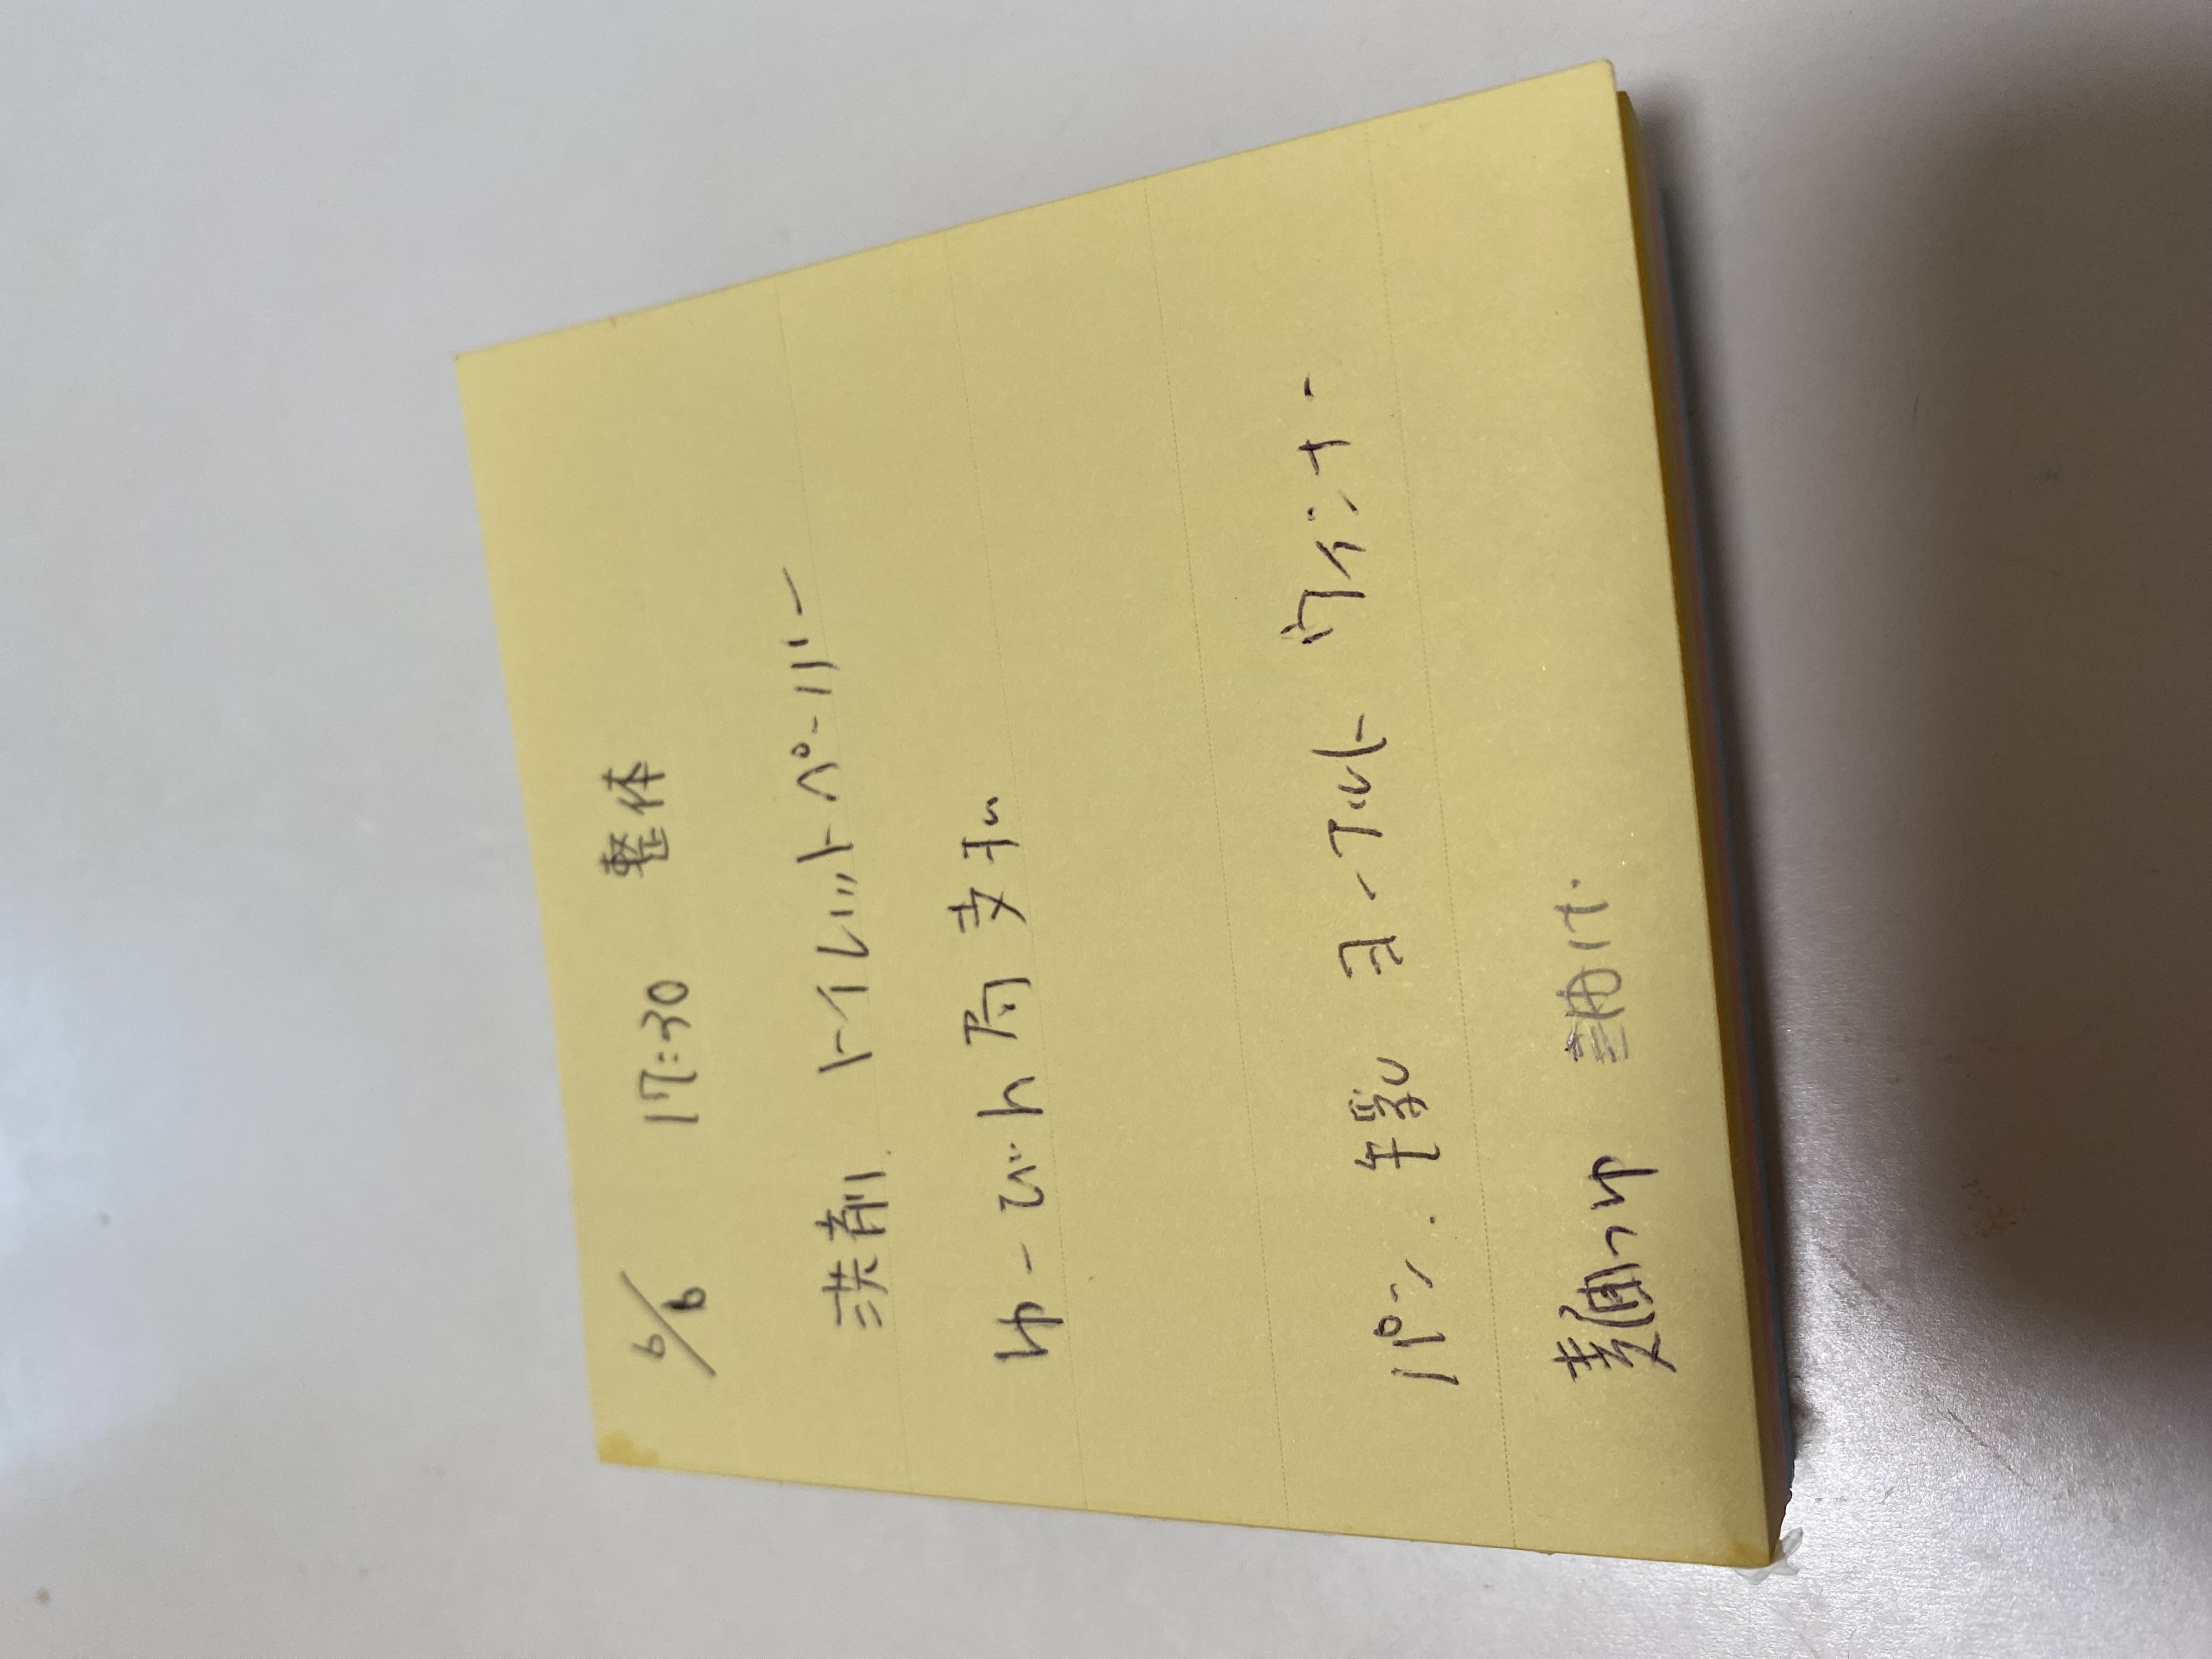 6/6 17:30 整体
洗剤 トイレットペーパー
ゆーびん局支払
パン. 牛乳 ヨーグルト ウインナー
麺つゆ